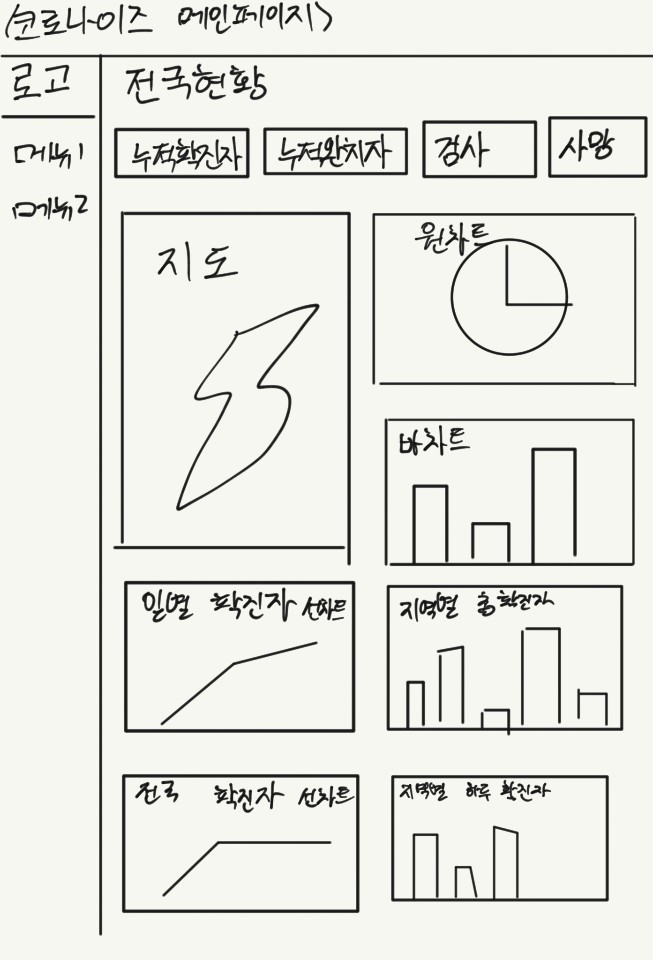 <코로나-이즈 메인페이지>
로고
전국현황
메뉴1
메뉴2
누적확진자
누적완치자
검사
사망
지도
원차트
바차트
일별 확진자 선차트
지역별 총 확진자
전국 확진자 선차트
지역별 하루 확진자